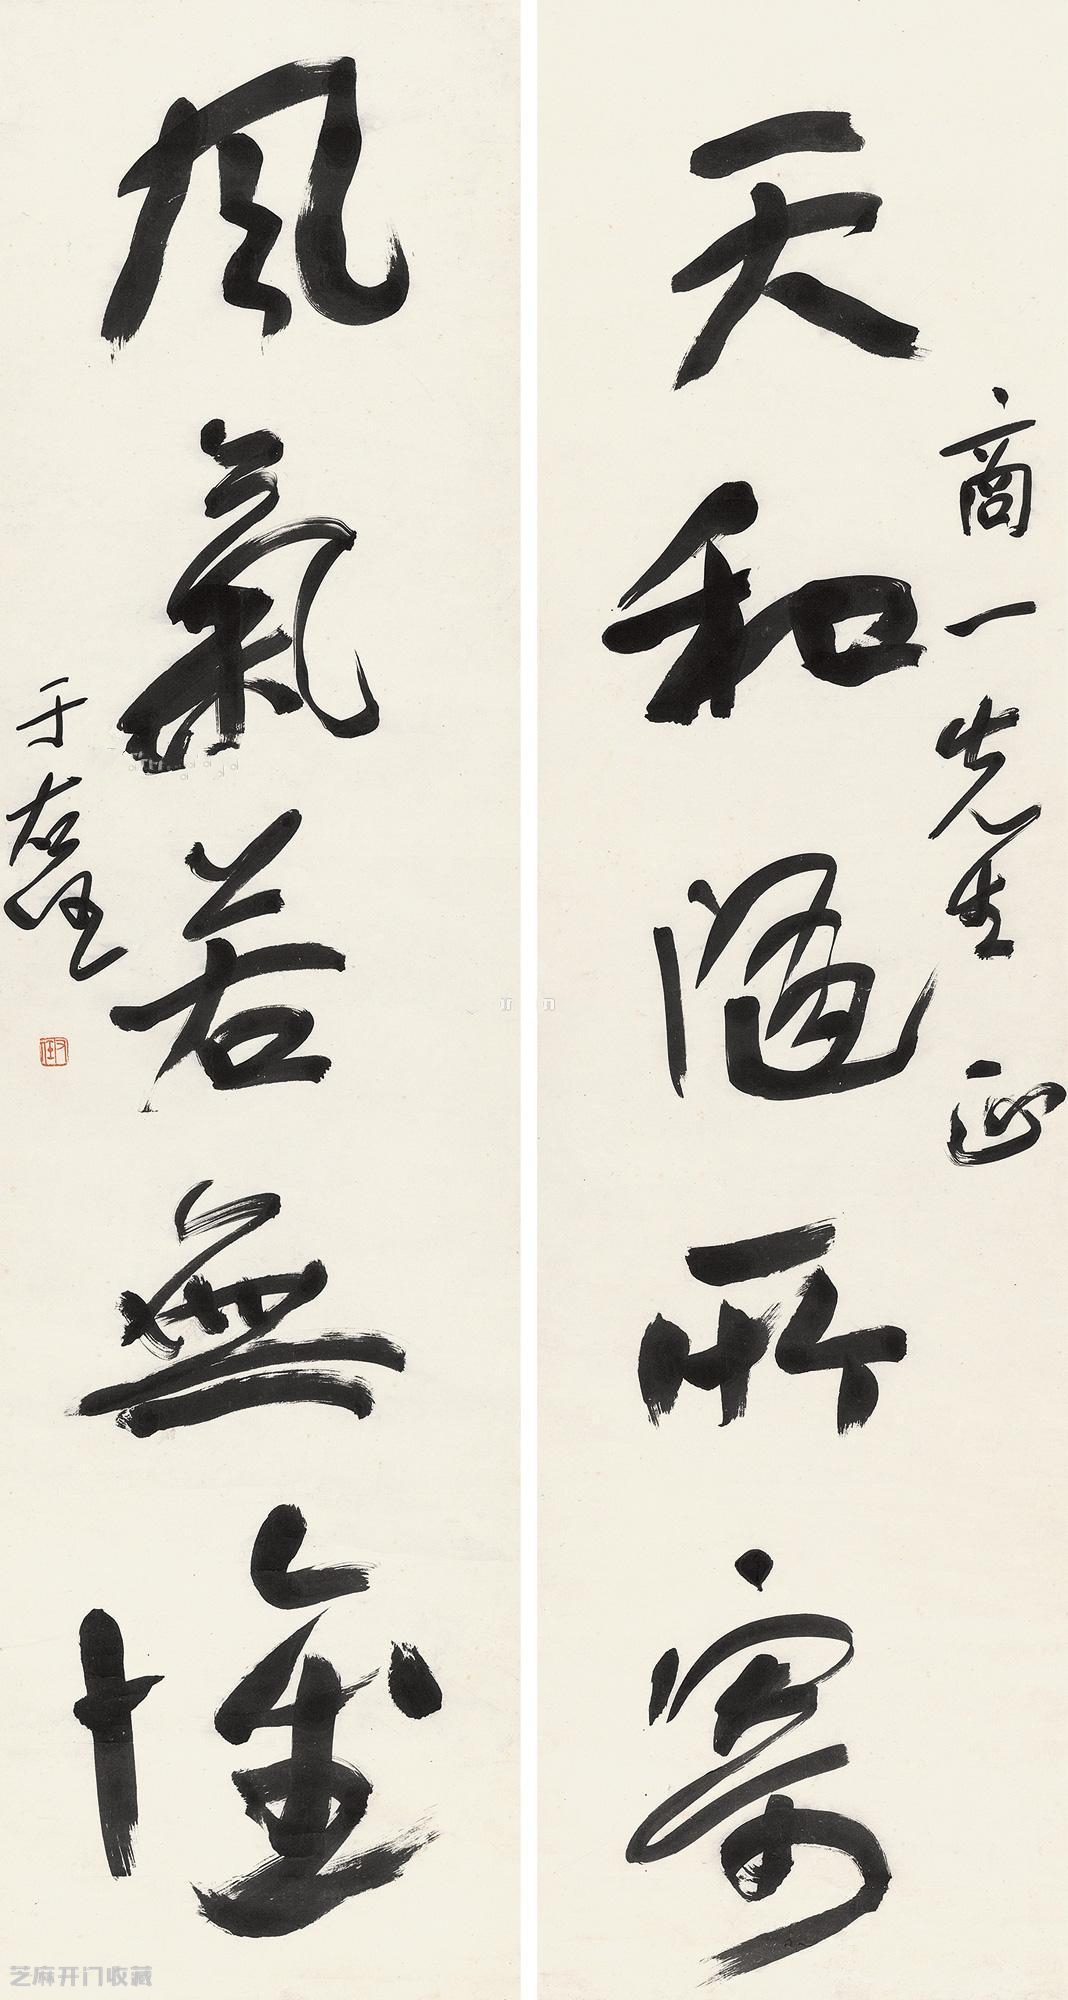 商一先生 正
天和隨所寄
風氣若無
于右任
右任
芝麻开门收藏